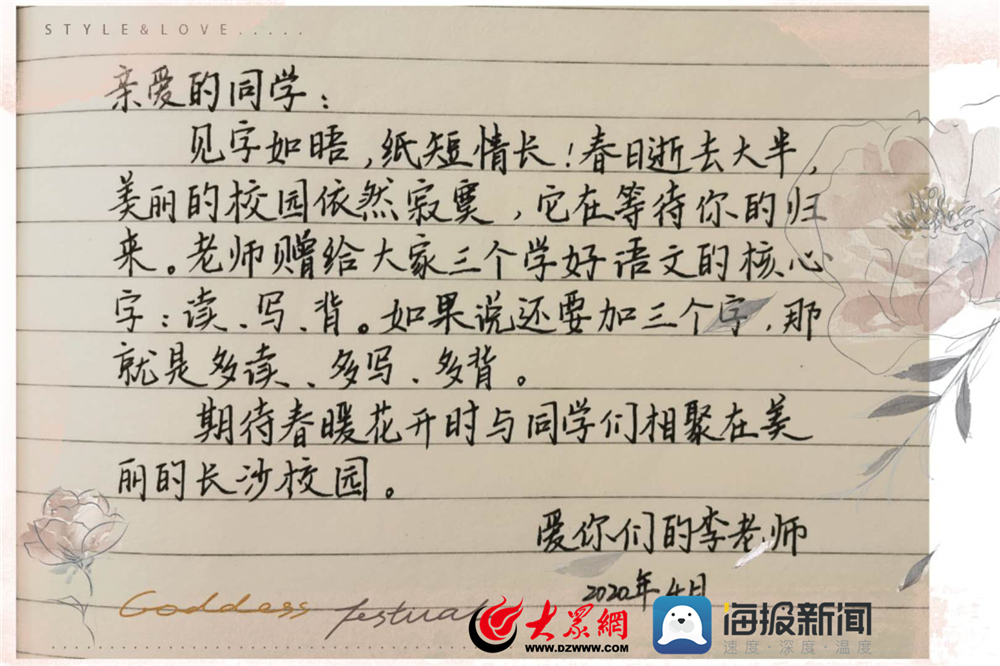 STYLE&LOVE.....
亲爱的同学：
见字如晤，纸短情长！春日逝去大半，
美丽的校园依然寂寞，它在等待你的归
来。老师赠给大家三个学好语文的核心
字：读、写、背。如果说还要加三个字，那
就是多读、多写、多背。
期待春暖花开时与同学们相聚在美
丽的长沙校园。
爱你们的李老师
2020年4月
Goddess festival
大众網
www.dzwww.com
海报新闻
速度·深度·温度